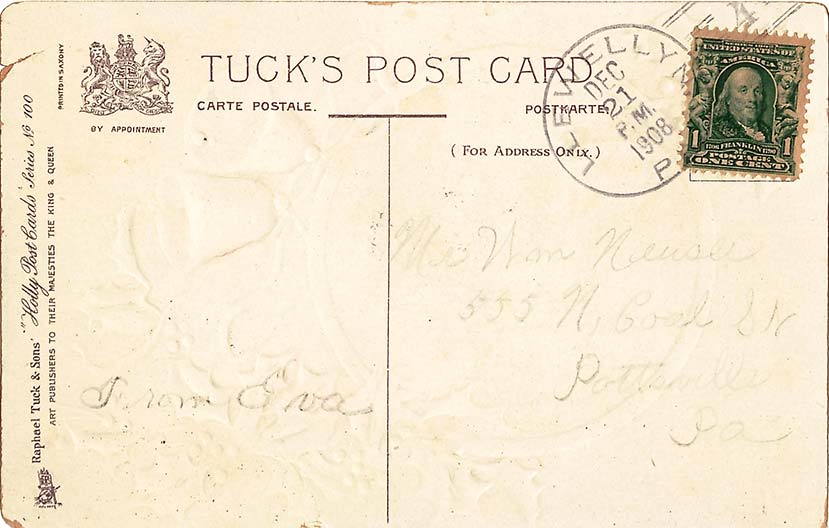 TUCK'S POST CARD
CARTE POSTALE.
POSTKARTE.
(FOR ADDRESS ONLY.)
BY APPOINTMENT
PRINTED IN SAXONY
Raphael Tuck & Sons' "Holly Post Cards" Series No 100
ART PUBLISHERS TO THEIR MAJESTIES THE KING & QUEEN
LLEWELLYN
DEC
21
P.M.
1908
P
SERIES 1902
UNITED STATES OF
AMERICA
1706 FRANKLIN 1790
1 POSTAGE 1
ONE CENT
4
From Eva
Wm
555 N, Coal St
Pottsville
Pa